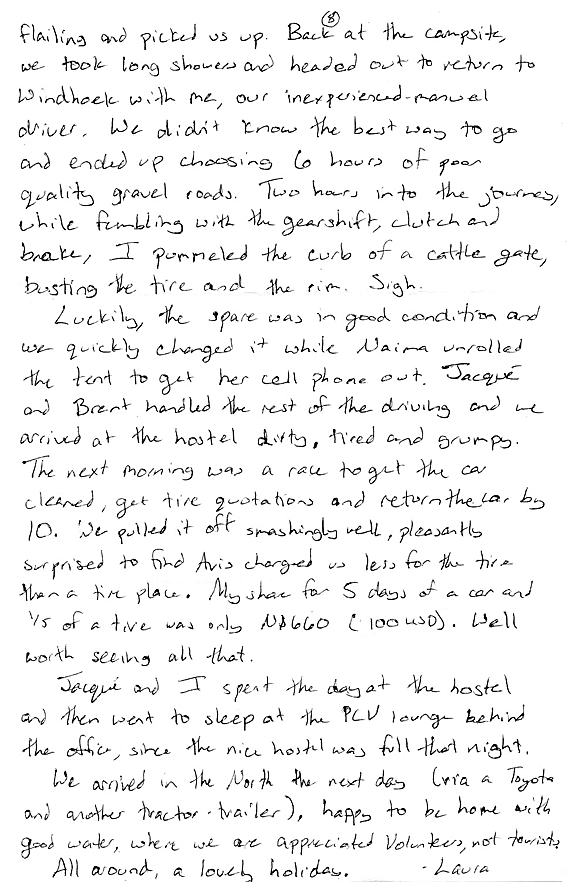 8
flailing and picked us up. Back at the campsite,
we took long showers and headed out to return to
Windhoek with me, our inexperienced-manual
driver. We didn't know the best way to go
and ended up choosing 6 hours of poor
quality gravel roads. Two hours into the journey,
while fumbling with the gearshift, clutch and
brake, I pummeled the curb of a cattle gate,
busting the tire and the rim. Sigh.
Luckily, the spare was in good condition and
we quickly changed it while Naima unrolled
the tent to get her cell phone out. Jacqué
and Brent handled the rest of the driving and we
arrived at the hostel dirty, tired and grumpy.
The next morning was a race to get the car
cleaned, get tire quotations and return the car by
10. We pulled it off smashingly well, pleasantly
surprised to find Avis charged us less for the tire
than a tire place. My share for 5 days of a car and
1/5 of a tire was only N$660 (100 USD). Well
worth seeing all that.
Jacqué and I spent the day at the hostel
and then went to sleep at the PCV lounge behind
the office, since the nice hostel was full that night.
We arrived in the North the next day (via a Toyota
and another tractor-trailer), happy to be home with
good water, where we are appreciated Volunteers, not tourists.
All around, a lovely holiday. - Laura